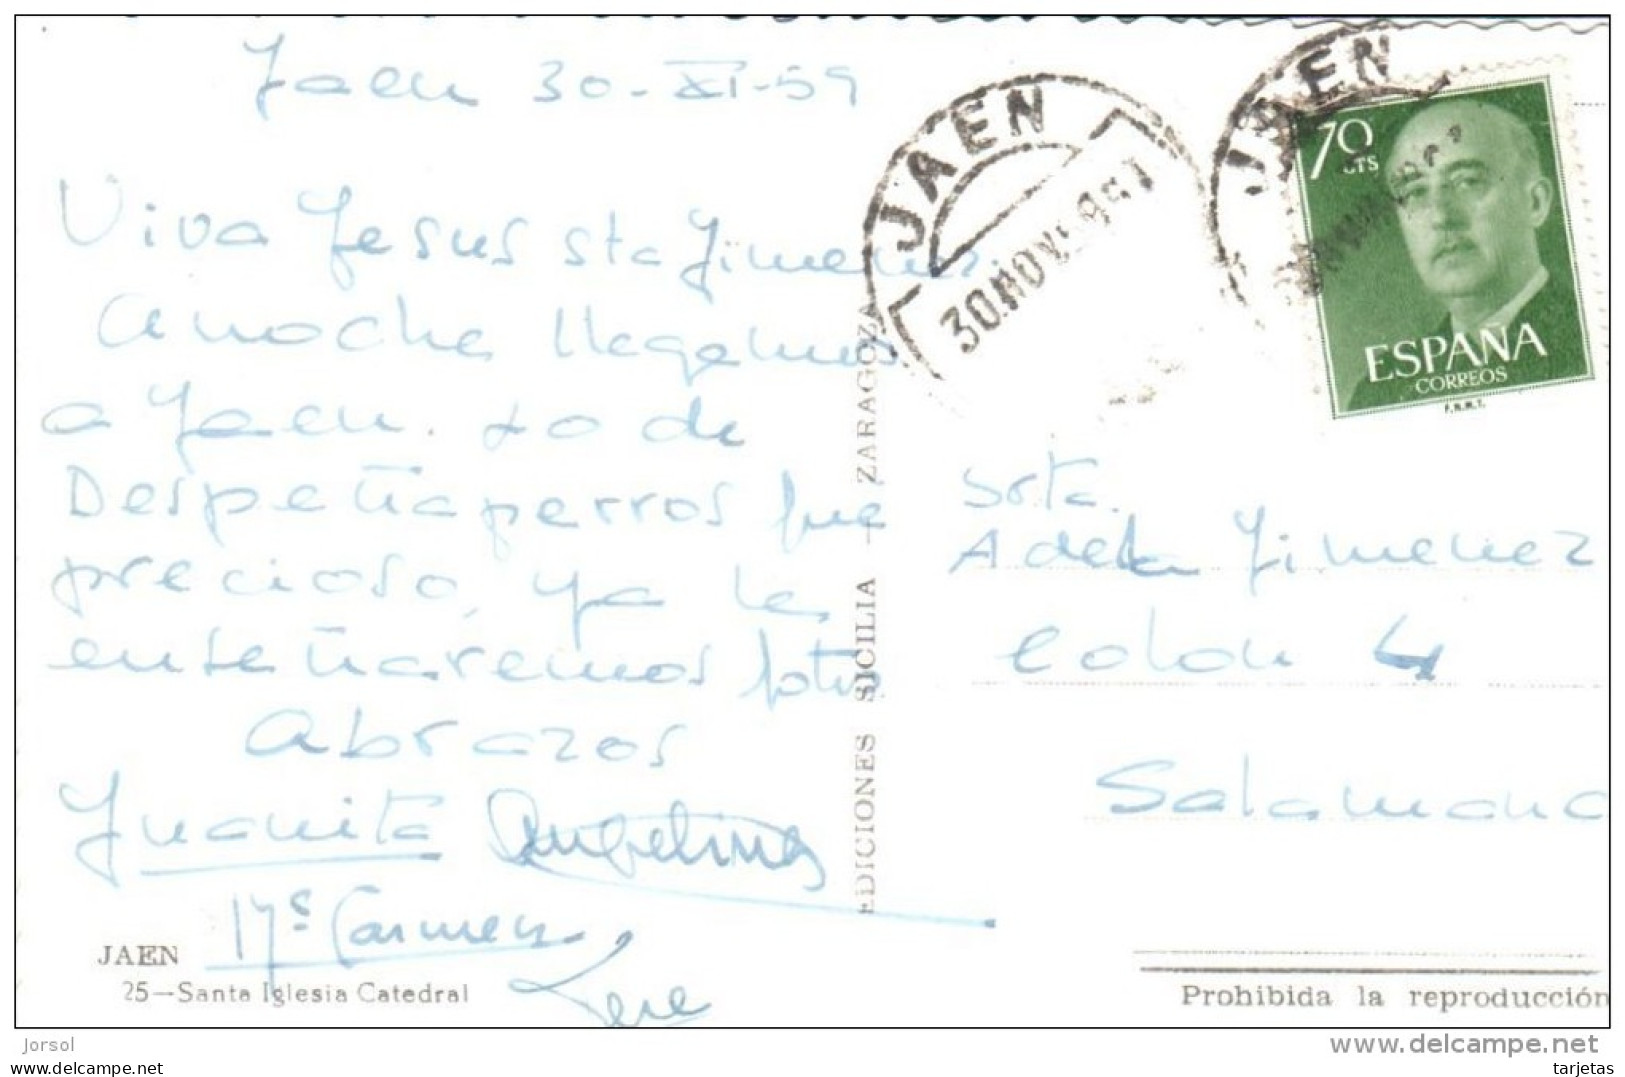 Jaen 30-XI-59
Viva Jesus sta Jimenez
Anoche llegamos
a Jaen. Lo de
Despeñaperros fue
precioso, ya le
enseñaremos fotos
Abrazos
Juanita Angelines
Mª Carmen
Tere
JAEN
25—Santa Iglesia Catedral
EDICIONES SICILIA — ZARAGOZA
JAEN
30 NOV 1959
JAEN
70 CTS
ESPAÑA
CORREOS
F.N.M.T.
Srta.
Adela Jimenez
Colon 4
Salamanc
Prohibida la reproducción
Jorsol
www.delcampe.net
car-war
tarjetas